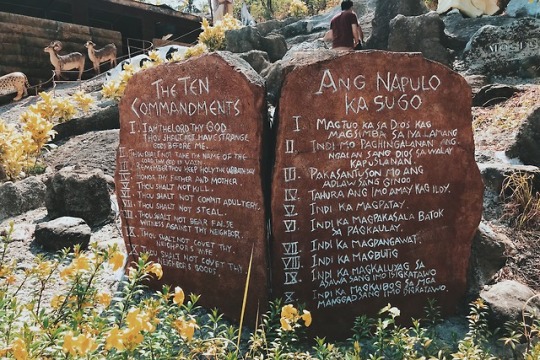 THE TEN
COMMANDMENTS
I. I AM THE LORD THY GOD
THOU SHALT NOT HAVE STRANGE
GODS BEFORE ME.
THOU SHALT NOT TAKE THE NAME OF THE
LORD IN VAIN
REMEMBER THOU KEEP HOLY THE SABBATH DAY
HONOR THY FATHER AND MOTHER
THOU SHALT NOT KILL.
THOU SHALT NOT COMMIT ADULTERY.
THOU SHALT NOT STEAL.
THOU SHALT NOT BEAR FALSE
WITNESS AGAINST THY NEIGHBOR.
THOU SHALT NOT COVET THY
NEIGHBOR'S WIFE
THOU SHALT NOT COVET THY
NEIGHBOR'S GOODS.
ANG NAPULO
KA SUGO
I. MAGTUO KA SA DIOS KAG
MAGSIMBA SA IYA LAMANG
II. INDI MO PAGHINGALANAN ANG
NGALAN SANG DIOS SA WALAY
KAPUSLANAN.
III. PAKASANTUSON MO ANG
ADLAW SANG GINOO
IV. TAHURA ANG IMO AMAY KAG ILOY.
V. INDI KA MAGPATAY.
VI. INDI KA MAGPAKASALA BATOK
SA PAGKAULAY.
VII. INDI KA MAGPANGAWAT.
VIII. INDI KA MAGBUTIG
IX. INDI KA MAGKALUYAG SA
ASAWA SANG IMO ISIGKATAWO
X. INDI KA MAGKAIBOG SA MGA
MANGGAD SANG IMO ISIGKATAWO.